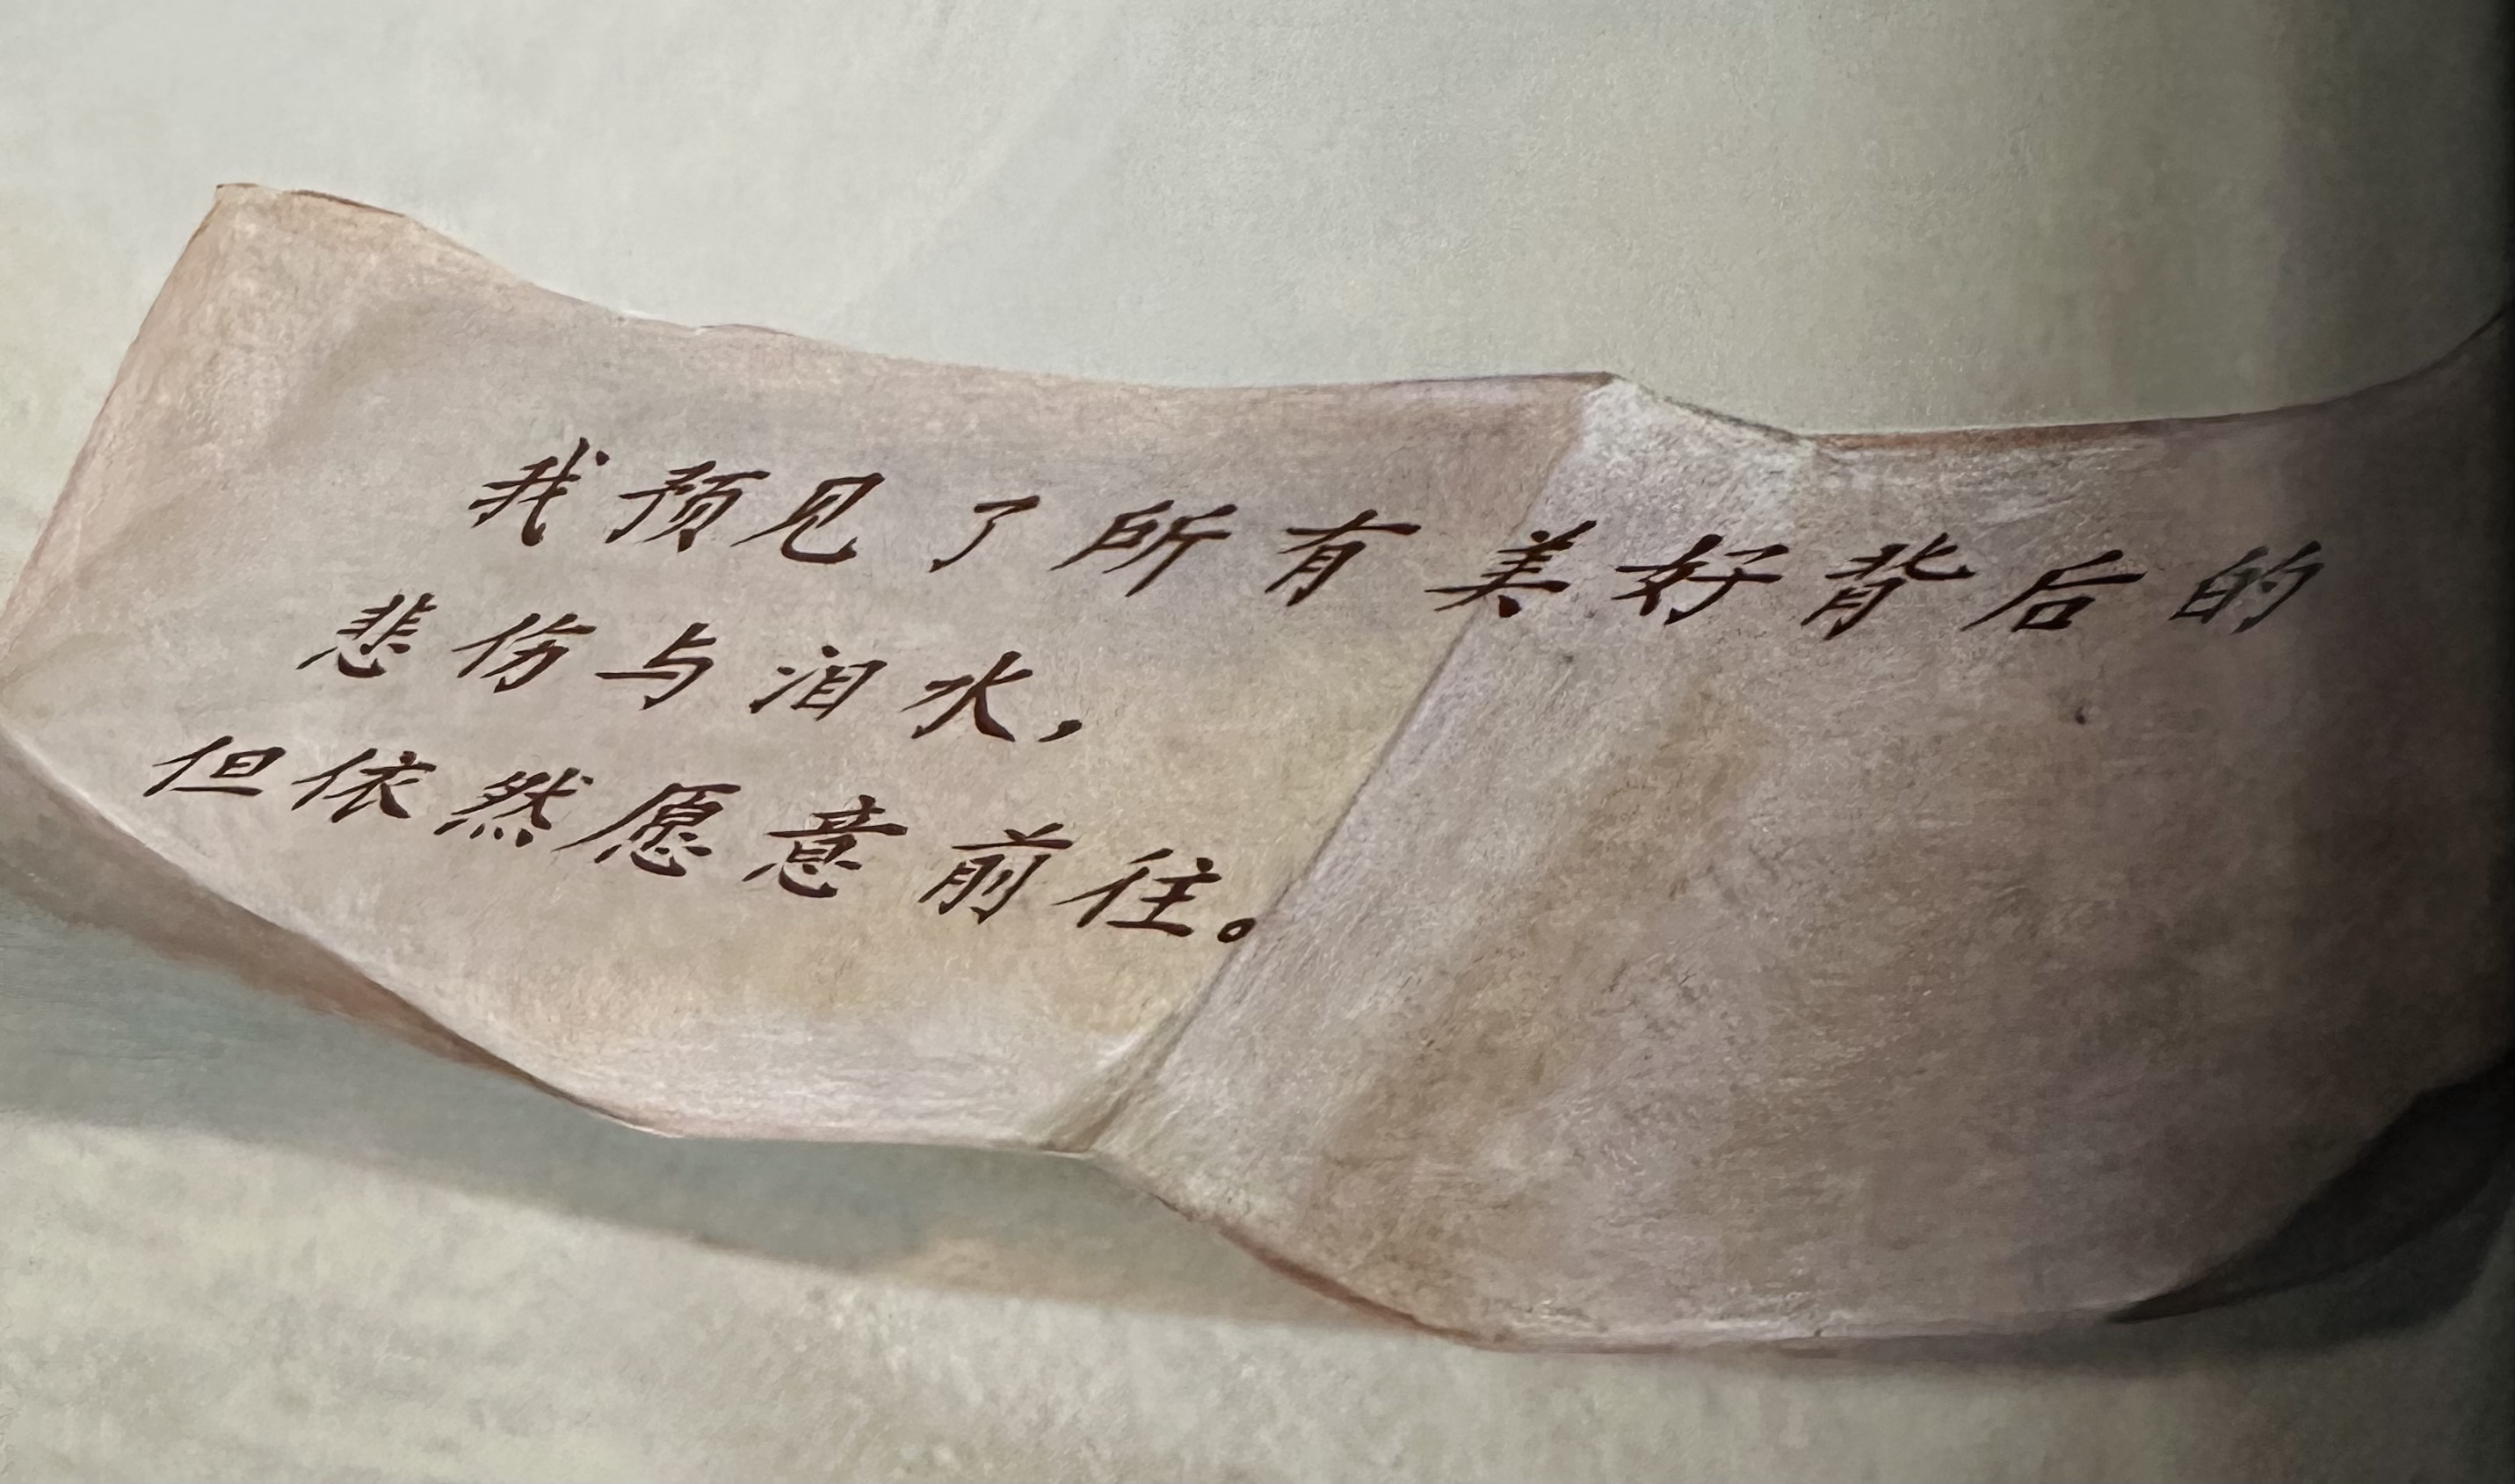 我预见了所有美好背后的
悲伤与泪水，
但依然愿意前往。